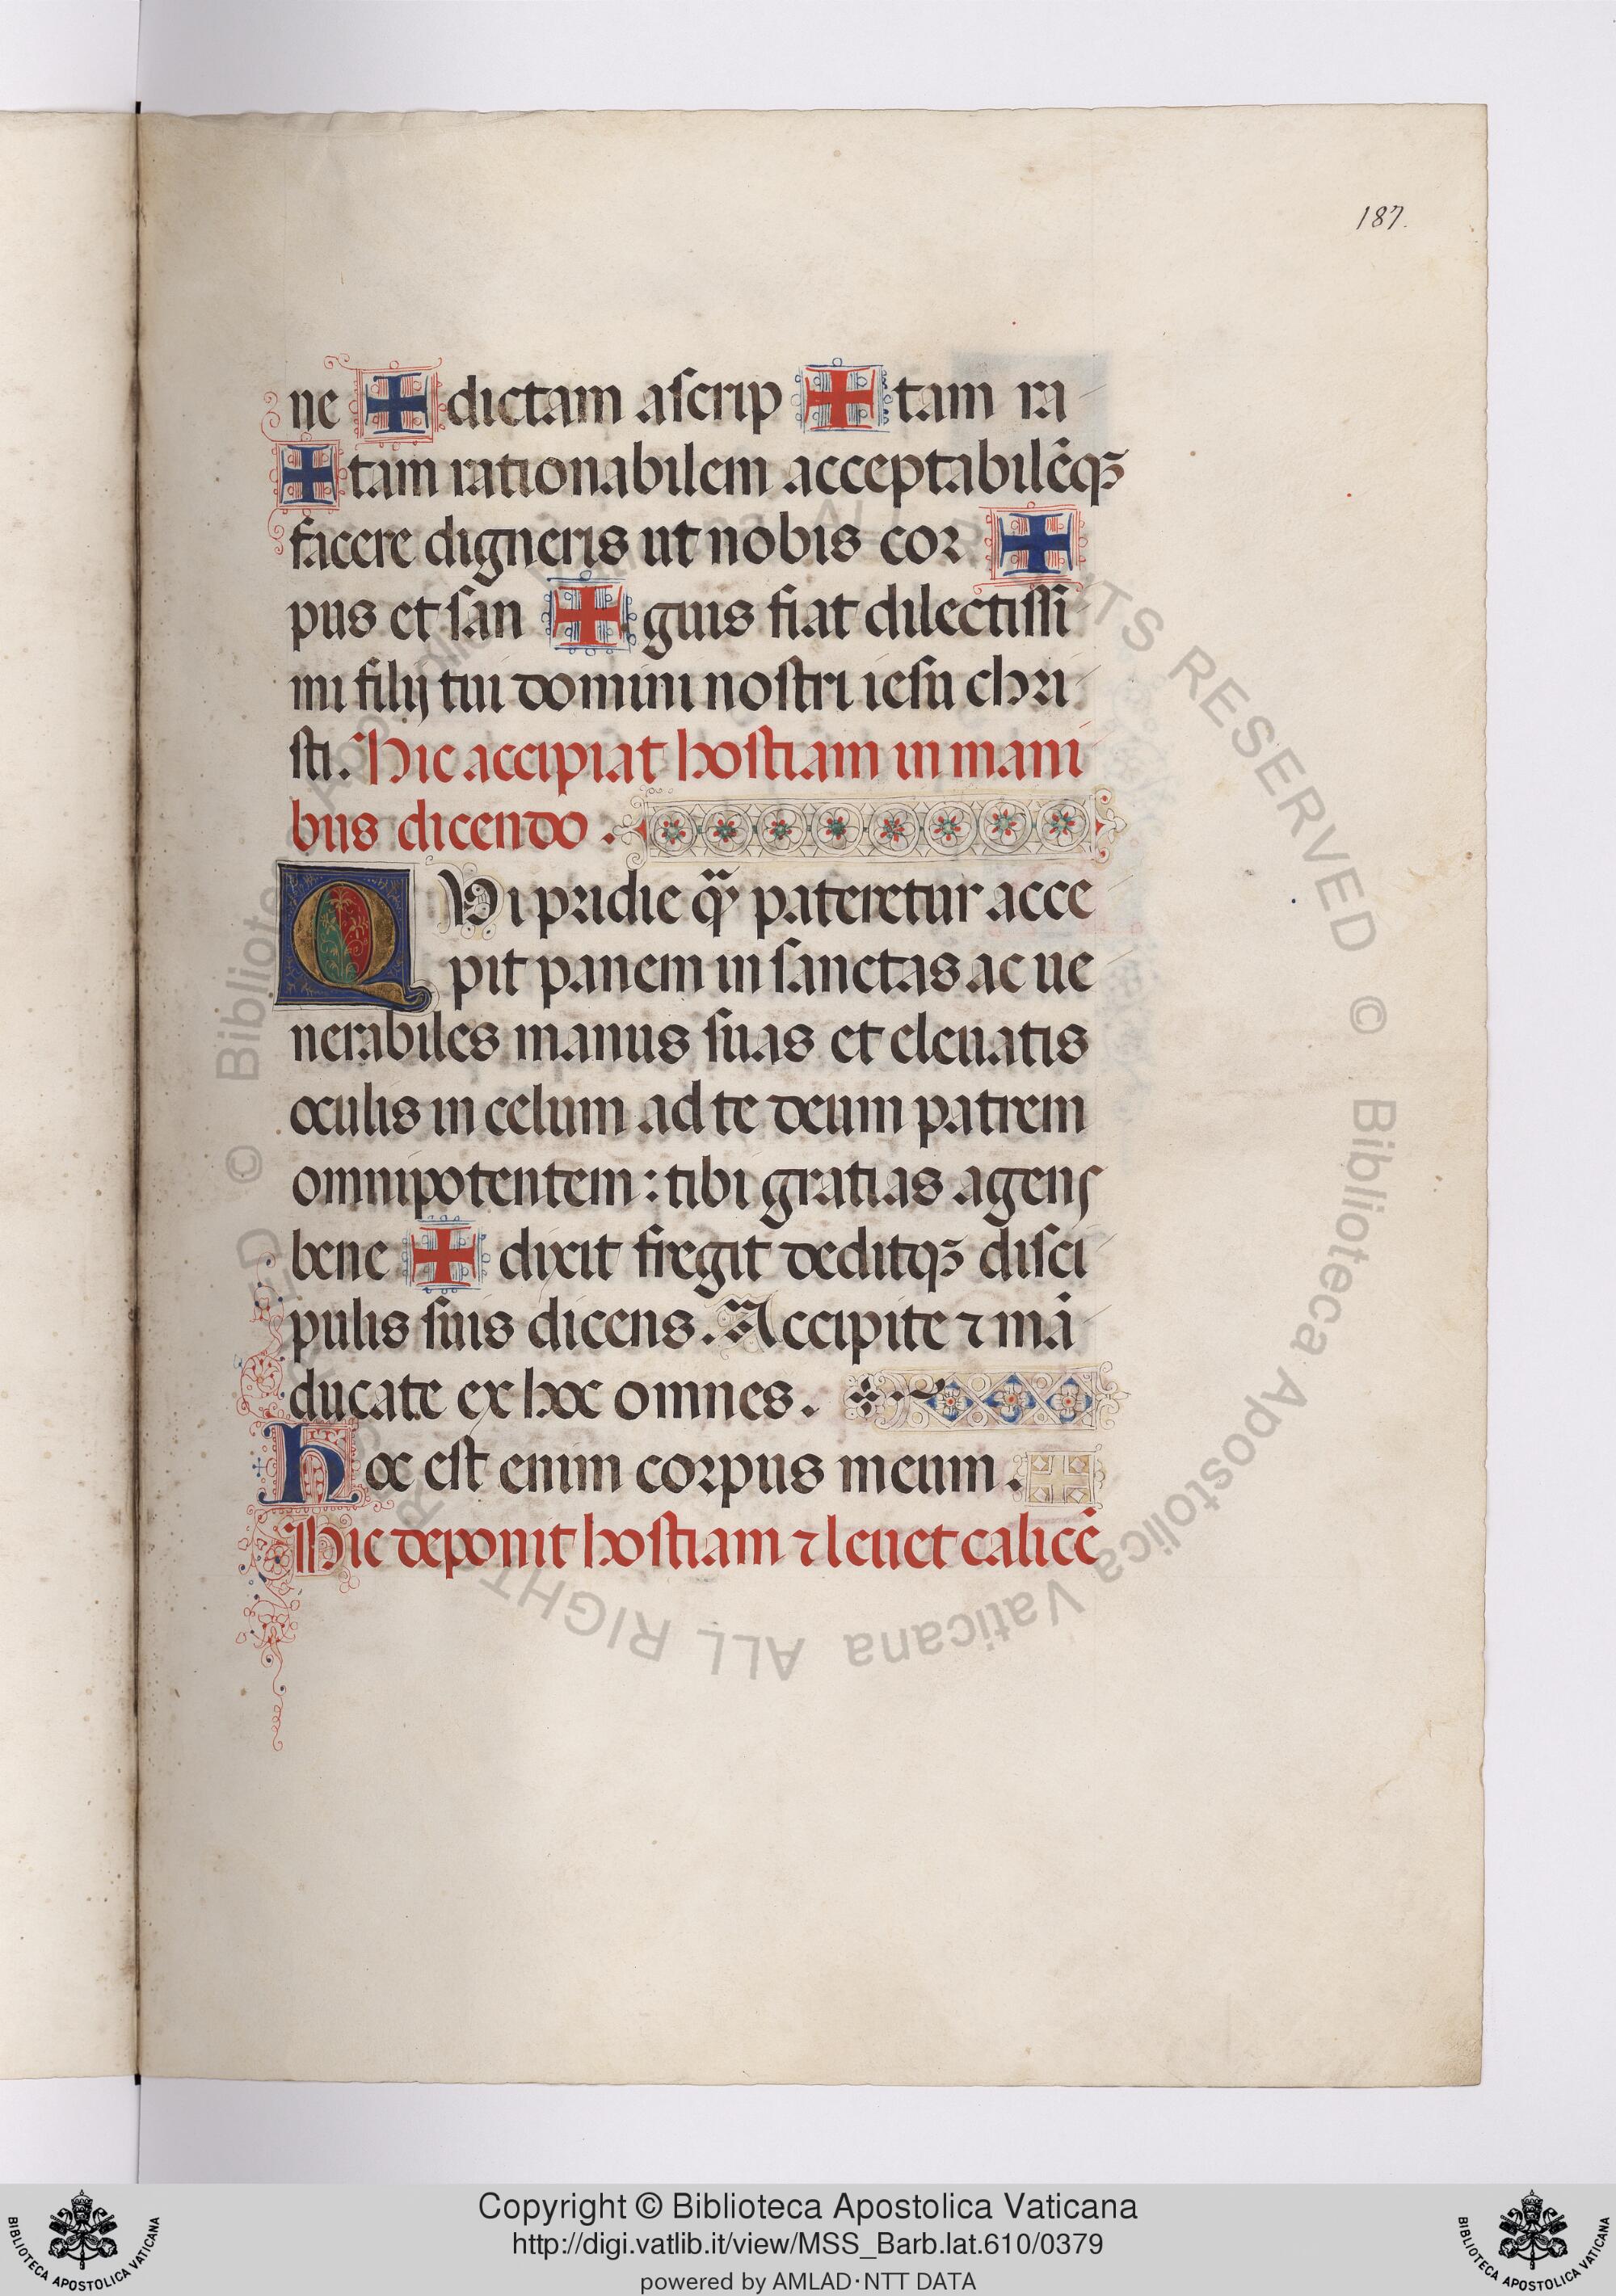 187.
ne ✠ dictam ascrip ✠ tam ra
✠ tam rationabilem acceptabilḗqꝫ
facere digneris ut nobis cor ✠
pus et san ✠ guis fiat dilectissi
mi filij tui domini nostri iesu chri
sti. Hic accipiat hostiam in mani
bus dicendo.
QUi pridie qᷓ pateretur acce
pit panem in sanctas ac ue
nerabiles manus suas et eleuatis
oculis in celum ad te deum patrem
omnipotentem: tibi gratias agens
bene ✠ dixit fregit deditqꝫ disci
pulis suis dicens. Accipite ⁊ mā
ducate ex hoc omnes.
hoc est enim corpus meum.
Hic deponit hostiam ⁊ leuet calicē
© Biblioteca Apostolica Vaticana ALL RIGHTS RESERVED
© Biblioteca Apostolica Vaticana ALL RIGHTS RESERVED
Copyright © Biblioteca Apostolica Vaticana
http://digi.vatlib.it/view/MSS_Barb.lat.610/0379
powered by AMLAD·NTT DATA
BIBLIOTECA APOSTOLICA VATICANA
BIBLIOTECA APOSTOLICA VATICANA